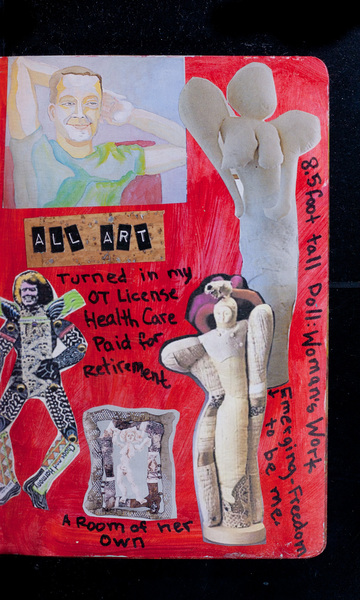 ALL ART
Turned in my
OT License
Health Care
Paid for
Retirement
8.5 foot tall Doll: Woman's Work
Emerging. Freedom
to be me.
A Room of her
Own